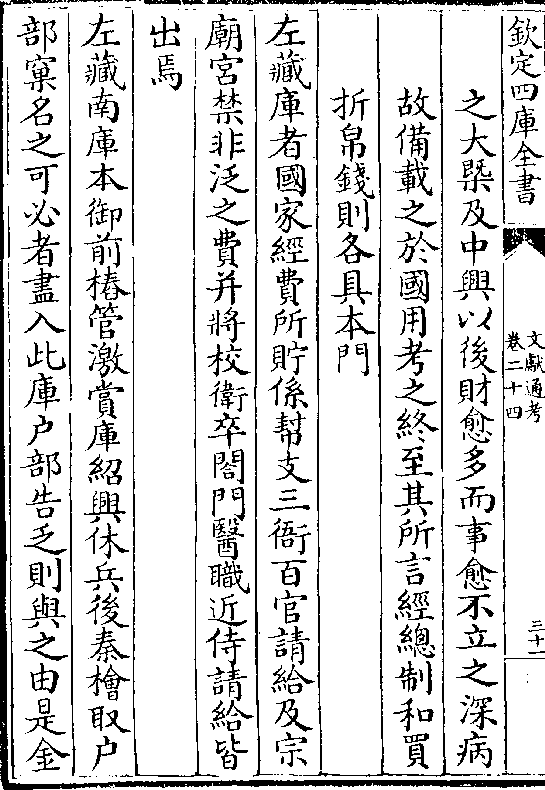 欽定四庫全書
文獻通考
卷二十四
三十一
之大槩及中興以後財愈多而事愈不立之深病
故備載之於國用考之終至其所言經總制和買
折帛錢則各具本門
左藏庫者國家經費所貯係幇支三衙百官請給及宗
廟宮禁非泛之費并將校衛卒閤門醫職近侍請給皆
出焉
左藏南庫本御前樁管激賞庫紹興休兵後秦檜取户
部窠名之可必者盡入此庫户部告乏則與之由是金